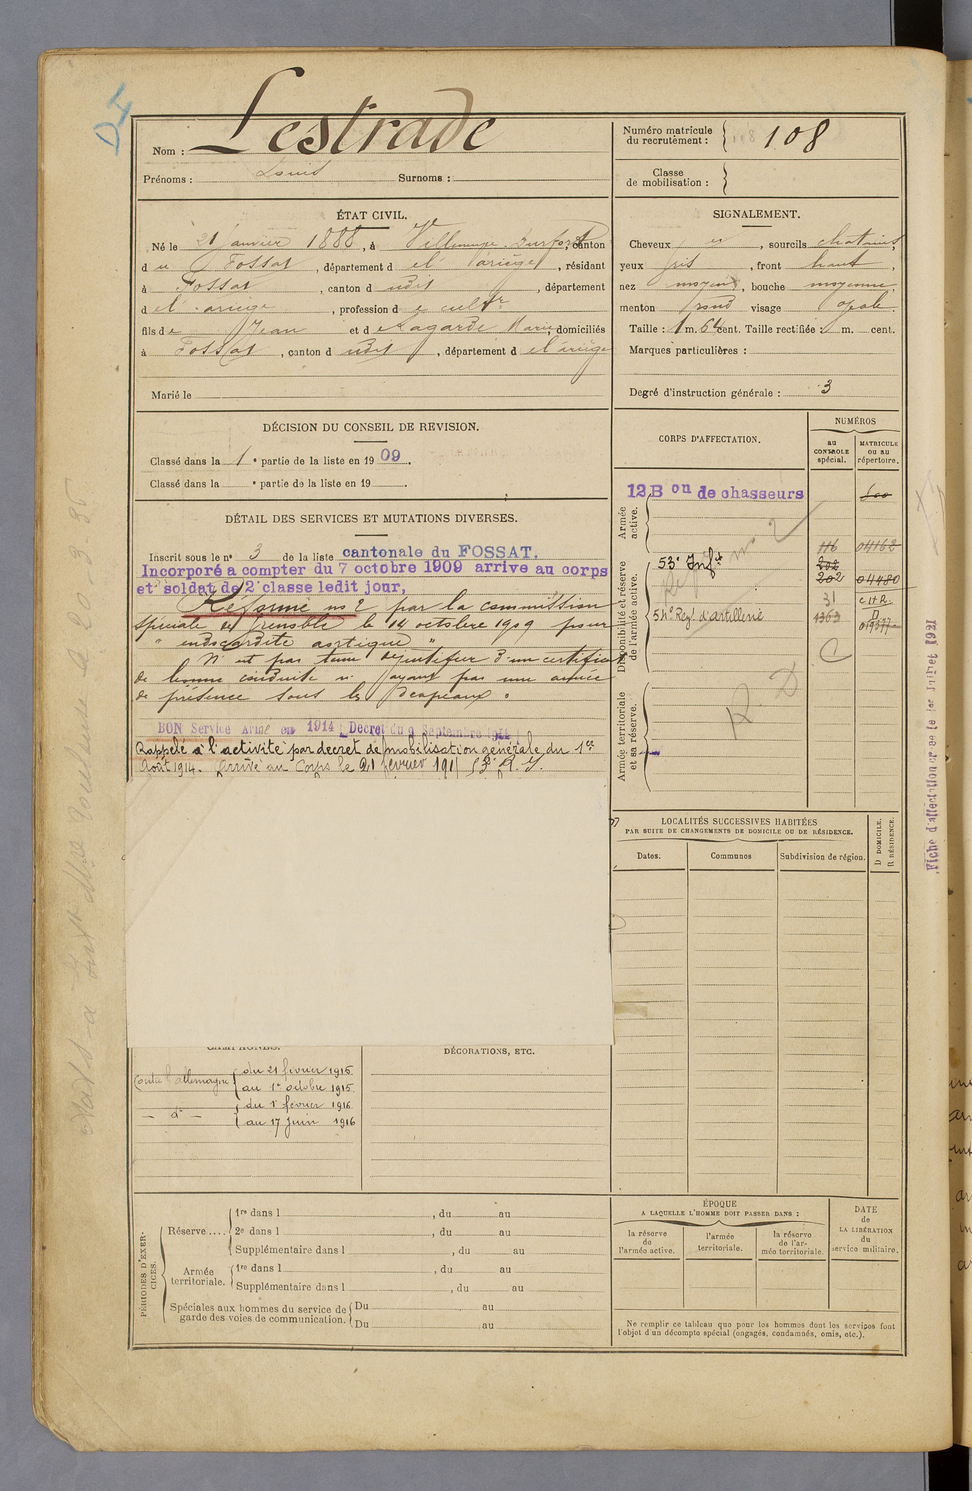 Nom : Lestrade
Prénoms : Louis Surnoms :
Numéro matricule
du recrutement : 108
Classe
de mobilisation :
ÉTAT CIVIL.
Né le 21 janvier 1888, à Villeneuve-Durfort, canton
du Fossat, département de l'Ariège, résidant
à Fossat, canton dudit, département
de l'Ariège, profession de cultr
fils de Jean et de Lagarde Marie, domiciliés
à Fossat, canton dudit, département de l'Ariège
Marié le
SIGNALEMENT.
Cheveux, sourcils chatains,
yeux gris, front haut,
nez moyen, bouche moyenne,
menton rond visage ovale.
Taille : 1 m. 64 cent. Taille rectifiée : m. cent.
Marques particulières :
Degré d'instruction générale : 3
DÉCISION DU CONSEIL DE REVISION.
Classé dans la 1e partie de la liste en 1909.
Classé dans la e partie de la liste en 19
DÉTAIL DES SERVICES ET MUTATIONS DIVERSES.
Inscrit sous le n° 3 de la liste cantonale du FOSSAT.
Incorporé a compter du 7 octobre 1909 arrive au corps
et soldat de 2e classe ledit jour,
Réformé n° 2 par la commission
spéciale de Grenoble le 14 octobre 1909 pour
" endocardite aortique "
N'est pas tenu de justifier d'un certificat
de bonne conduite n'ayant pas une année
de présence sous les Drapeaux.
BON Service Armé en 1914 Decret du 9 Septembre 1914
Rappelé à l'activité par decret de mobilisation générale du 1er
Août 1914. Arrivé au Corps le 21 février 191 53e R.I.
CORPS D'AFFECTATION.
NUMÉROS
au
CONTROLE
spécial.
MATRICULE
ou au
répertoire.
Armée
active.
12 Bon de chasseurs
Réf n° 2
Disponibilité et réserve
de l'armée active.
53e Inft
116 04162
202
202 04480
31
54e Régt d'artillerie 1363
C
Armée territoriale
et sa réserve.
R. D
LOCALITÉS SUCCESSIVES HABITÉES
PAR SUITE DE CHANGEMENTS DE DOMICILE OU DE RÉSIDENCE.
Dates. Communes Subdivision de région. D DOMICILE. R RÉSIDENCE.
Fiche d'affectation créée le 1er Juillet 1921
CAMPAGNES.
Contre l'Allemagne du 21 février 1915
au 1er octobre 1915
— do — du 1er février 1916
au 17 juin 1916
DÉCORATIONS, ETC.
PÉRIODES D'EXERCICES.
Réserve.... 1re dans l, du au
2e dans l, du au
Supplémentaire dans l, du au
Armée
territoriale. 1re dans l, du au
Supplémentaire dans l, du au
Spéciales aux hommes du service de
garde des voies de communication. Du au
Du au
ÉPOQUE
A LAQUELLE L'HOMME DOIT PASSER DANS :
la réserve
de
l'armée active.
l'armée
territoriale.
la réserve
de l'ar-
mée territoriale.
DATE
de
LA LIBÉRATION
du
service militaire.
Ne remplir ce tableau que pour les hommes dont les services font
l'objet d'un décompte spécial (engagés, condamnés, omis, etc.).